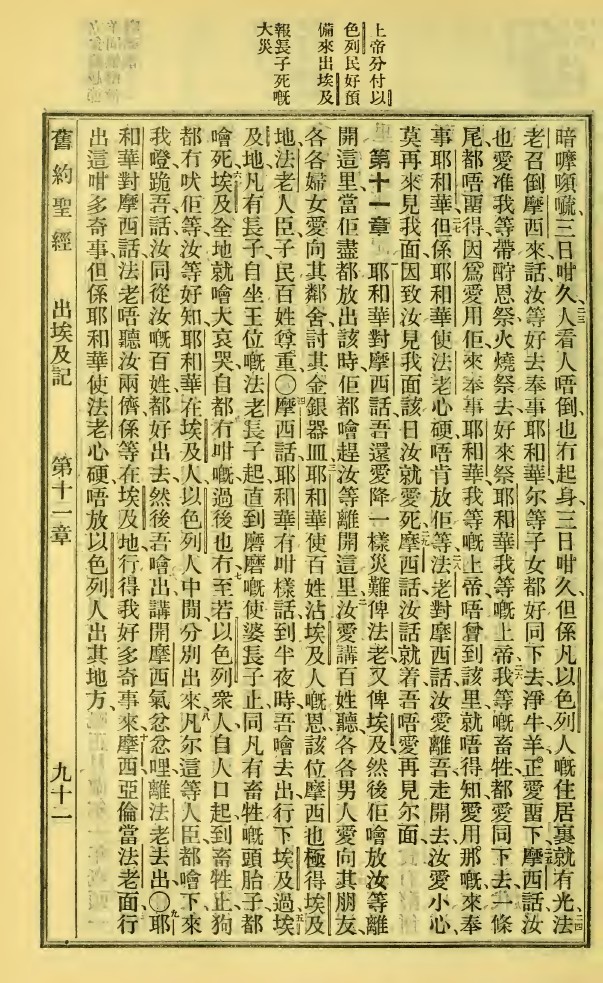 上帝分付以
色列民好預
備來出埃及
報長子死嘅
大災
暗嚤嚬嚈三日咁久人看人唔倒也冇起身三日咁久但係凡以色列人嘅住居裏就有光法
老召倒摩西來話汝等好去奉事耶和華尔等子女都好同下去淨牛羊正愛畱下摩西話汝
也愛准我等帶酧恩祭火燒祭去好來祭耶和華我等嘅上帝我等嘅畜牲都愛同下去一條
尾都唔畱得因爲愛用佢來奉事耶和華我等嘅上帝唔曾到該里就唔得知愛用那嘅來奉
事耶和華但係耶和華使法老心硬唔肯放佢等法老對摩西話汝愛離吾走開去汝愛小心
莫再來見我面因致汝見我面該日汝就愛死摩西話汝話就着吾唔愛再見尔面
第十一章 耶和華對摩西話吾還愛降一樣災難俾法老又俾埃及然後佢噲放汝等離
開這里當佢盡都放出該時佢都噲趕汝等離開這里汝愛講百姓聽各各男人愛向其朋友
各各婦女愛向其鄰舍討其金銀器皿耶和華使百姓沾埃及人嘅恩該位摩西也極得埃及
地法老人臣子民百姓尊重〇摩西話耶和華有咁樣話到半夜時吾噲去出行下埃及過埃
及地凡有長子自坐王位嘅法老長子起直到磨磨嘅使婆長子止同凡有畜牲嘅頭胎子都
噲死埃及全地就噲大哀哭自都冇咁嘅過後也冇至若以色列衆人自人口起到畜牲止狗
都冇吠佢等汝等好知耶和華在埃及人以色列人中間分別出來凡尔這等人臣都噲下來
我嶝跪吾話汝同從汝嘅百姓都好出去然後吾噲出講開摩西氣忿忿哩離法老去出〇耶
和華對摩西話法老唔聽汝兩儕係等在埃及地行得我好多奇事來摩西亞倫當法老面行
出這咁多奇事但係耶和華使法老心硬唔放以色列人出其地方
舊約聖經 出埃及記 第十一章 九十一